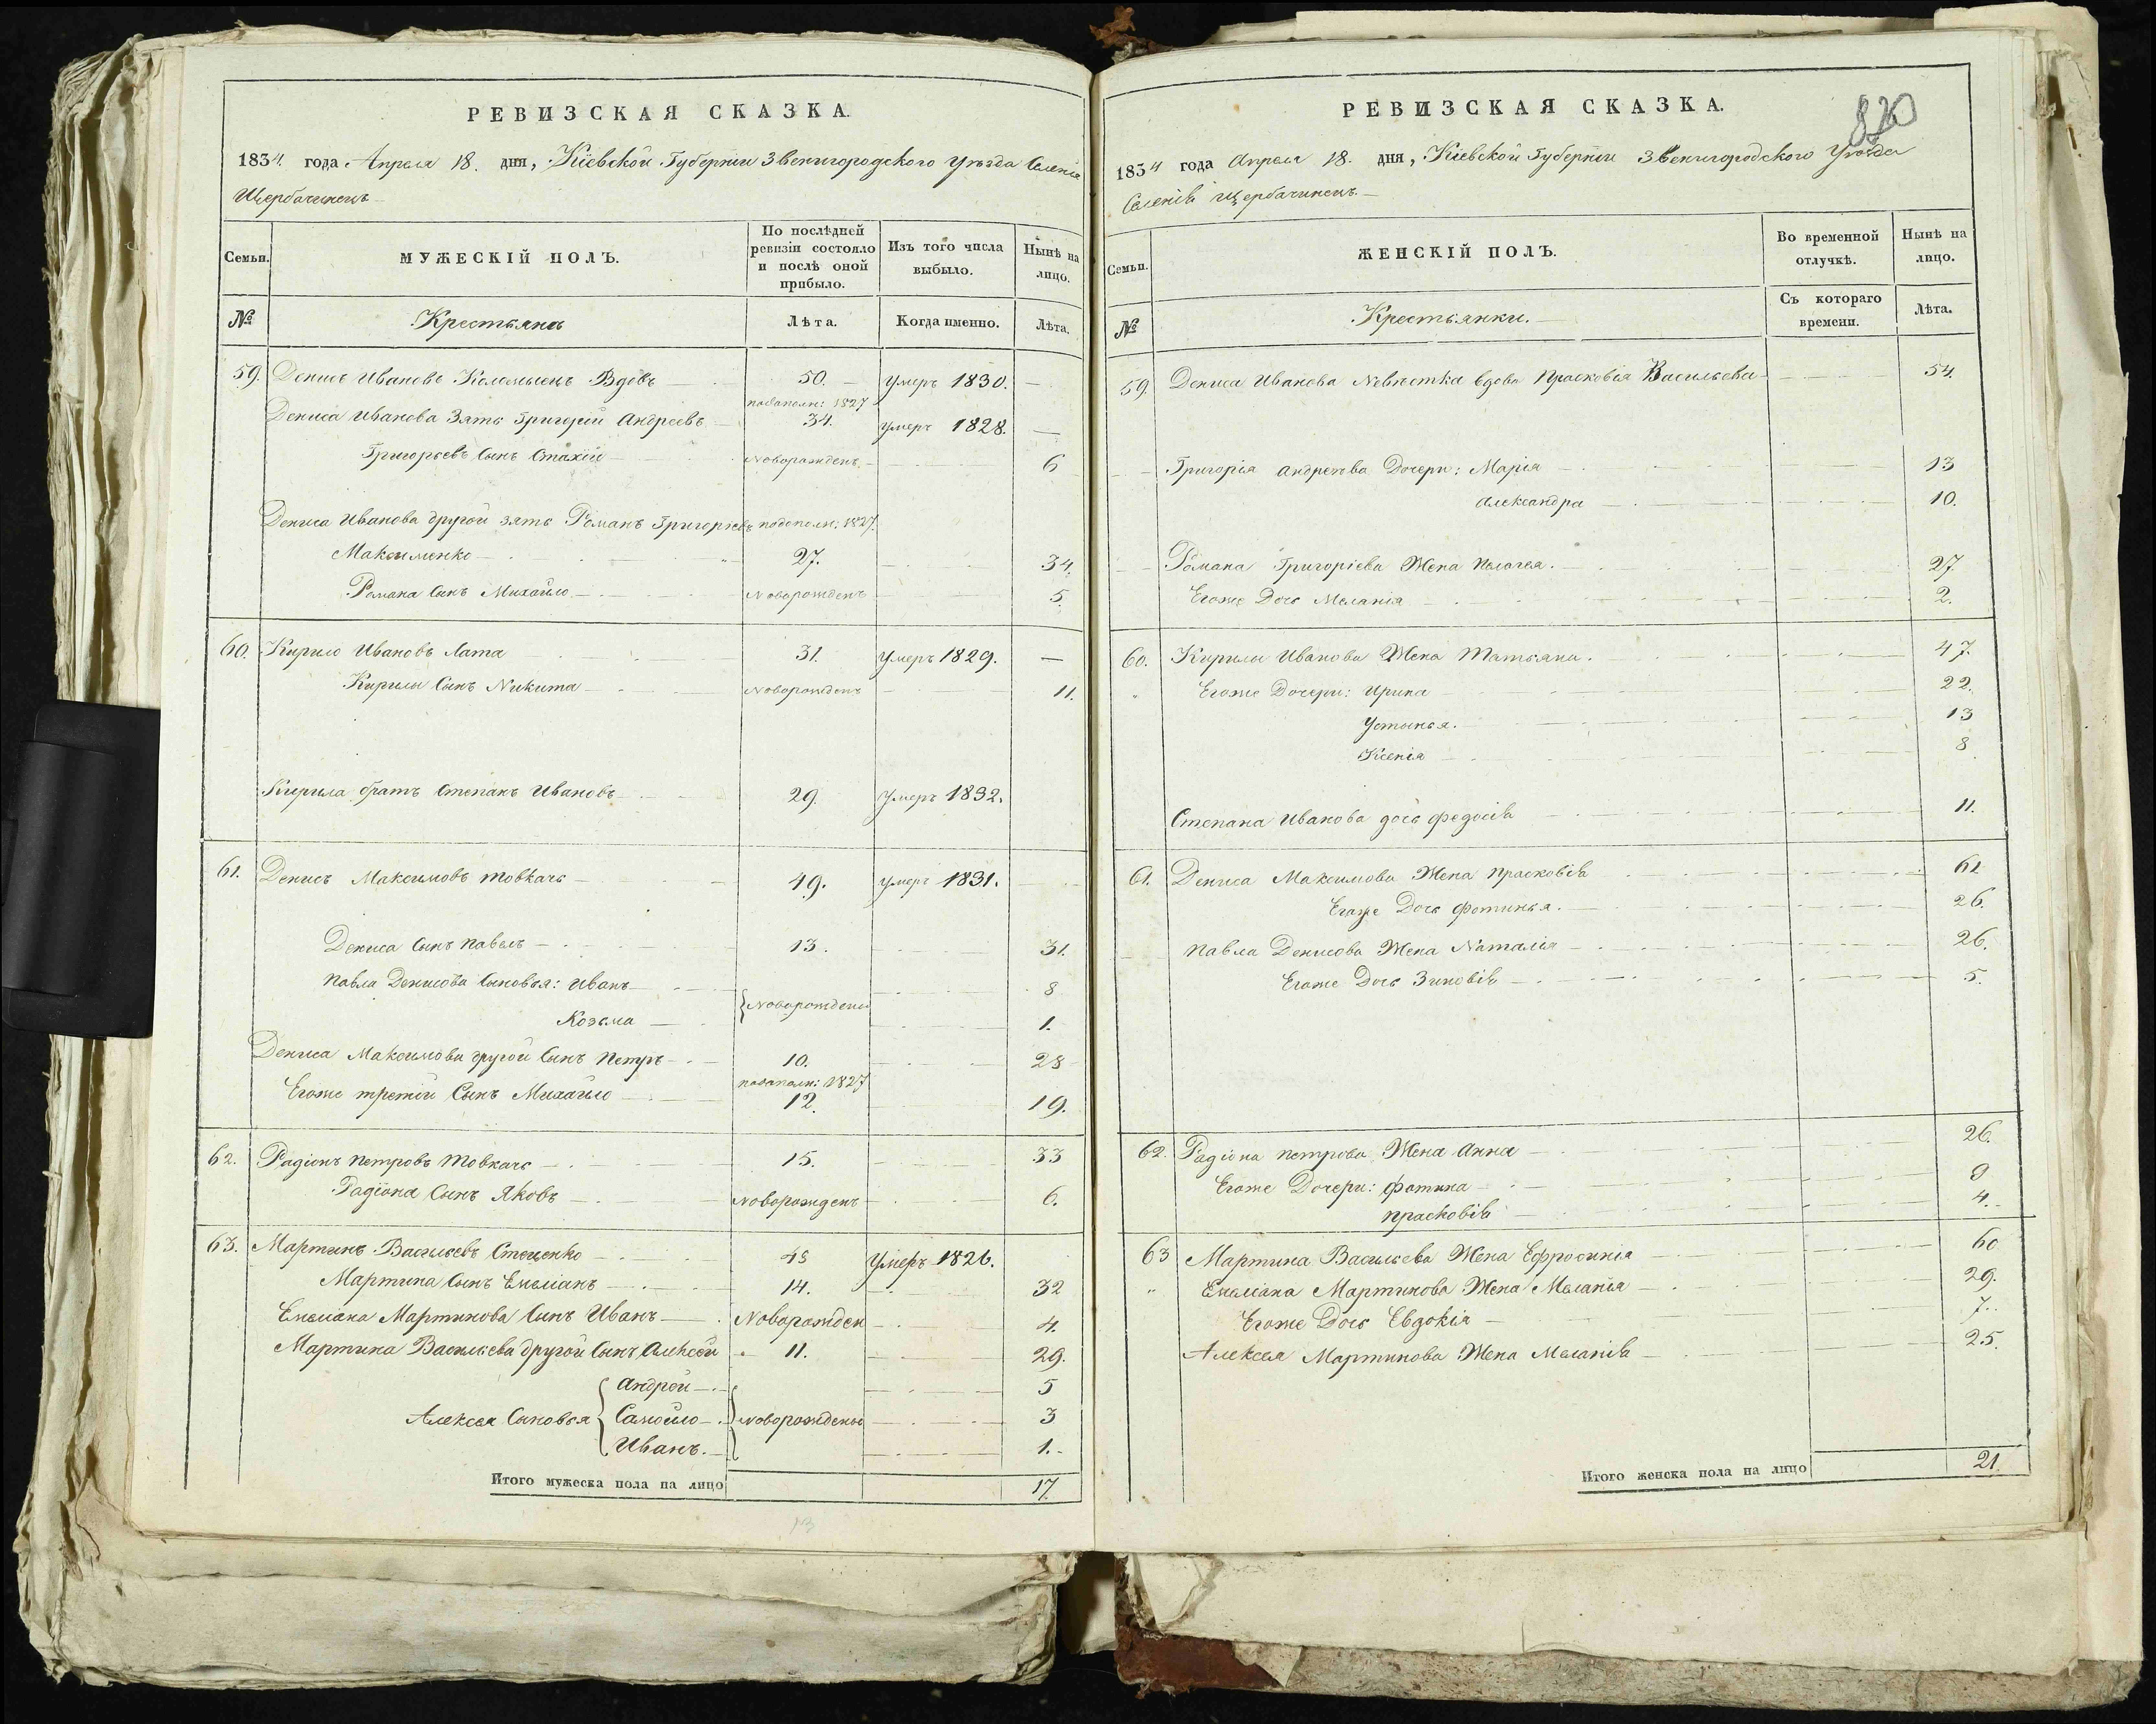 РЕВИЗСКАЯ СКАЗКА.
1834. года Апреля 18. дня, Кіевской Губерніи Звенигородского Уѣзда Селенія
Щербачинецъ
Семьи.
МУЖЕСКІЙ ПОЛЪ.
По послѣдней ревизіи состояло и послѣ оной прибыло.
Изъ того числа выбыло.
Нынѣ на лицо.
№ Крестьяне Лѣта. Когда именно. Лѣта.
59. Денисъ Ивановъ Вдовъ 50. умеръ 1830. —
подополн: 1827
Дениса Иванова Зять Григорій Андреевъ 34. умеръ 1828. —
Григорьевъ Сынъ Стахій Новорожденъ 6
Дениса Иванова другой зять Романъ Григоріевъ подополн: 1827.
Максименко 27. 34.
Романа Сынъ Михайло Новорожденъ 5.
60. Кирило Ивановъ Лата 31. умеръ 1829. —
Кирилы Сынъ Никита Новорожденъ 11.
Кирила братъ Степанъ Ивановъ 29. Умеръ 1832.
61. Денисъ Максимовъ Товкачъ 49. умеръ 1831.
Дениса Сынъ Павелъ 13. 31.
Павла Денисова Сыновья: Иванъ 8
Новорождены
Козьма 1.
Дениса Максимова другой Сынъ Петръ 10. 28
подополн: 1827
Егоже третій Сынъ Михайло 12. 19.
62. Радіонъ Петровъ Товкачъ 15. 33
Радіона Сынъ Яковъ Новорожденъ 6.
63. Мартинъ Васильевъ Стеценко 48 Умеръ 1826.
Мартина Сынъ Емеліанъ 14. 32
Емеліана Мартинова Сынъ Иванъ Новорожден 4.
Мартина Васильева другой Сынъ Алексей 11. 29.
Андрей 5
Алексея Сыновья Самойло Новорождены 3
Иванъ. 1.
Итого мужеска пола на лицо 17.
13
РЕВИЗСКАЯ СКАЗКА.
820
1834 года Апреля 18. дня, Кіевской Губерніи Звенигородского Уѣзда
Селенія Щербачинецъ.
Семьи.
ЖЕНСКІЙ ПОЛЪ.
Во временной отлучкѣ.
Нынѣ на лицо.
№ Крестьянки. Съ котораго времени. Лѣта.
59. Дениса Иванова Невѣстка вдова Прасковія Васильева 54.
Григорія Андреева Дочери: Марія 13
Александра 10.
Романа Григоріева Жена Пелагея. 27
Егоже Дочь Меланія 2.
60. Кирилы Иванова Жена Татьяна. 47.
Егоже Дочери: Ирина 22.
Устинья. 13
Ксенія 8
Степана Иванова дочь Федосія 11.
61. Дениса Максимова Жена Прасковія 61
Егоже Дочь Фотинья. 26.
Павла Денисова Жена Наталія 26.
Егоже Дочь Зиновія 5.
62. Радіона Петрова Жена Анна 26.
Егоже Дочери: Фотина 9
Прасковія 4.
63 Мартина Васильева Жена Ефросинія 60
Емеліана Мартинова Жена Меланія 29.
Егоже Дочь Евдокія 7.
Алексея Мартинова Жена Меланія 25.
Итого женска пола на лицо 21.